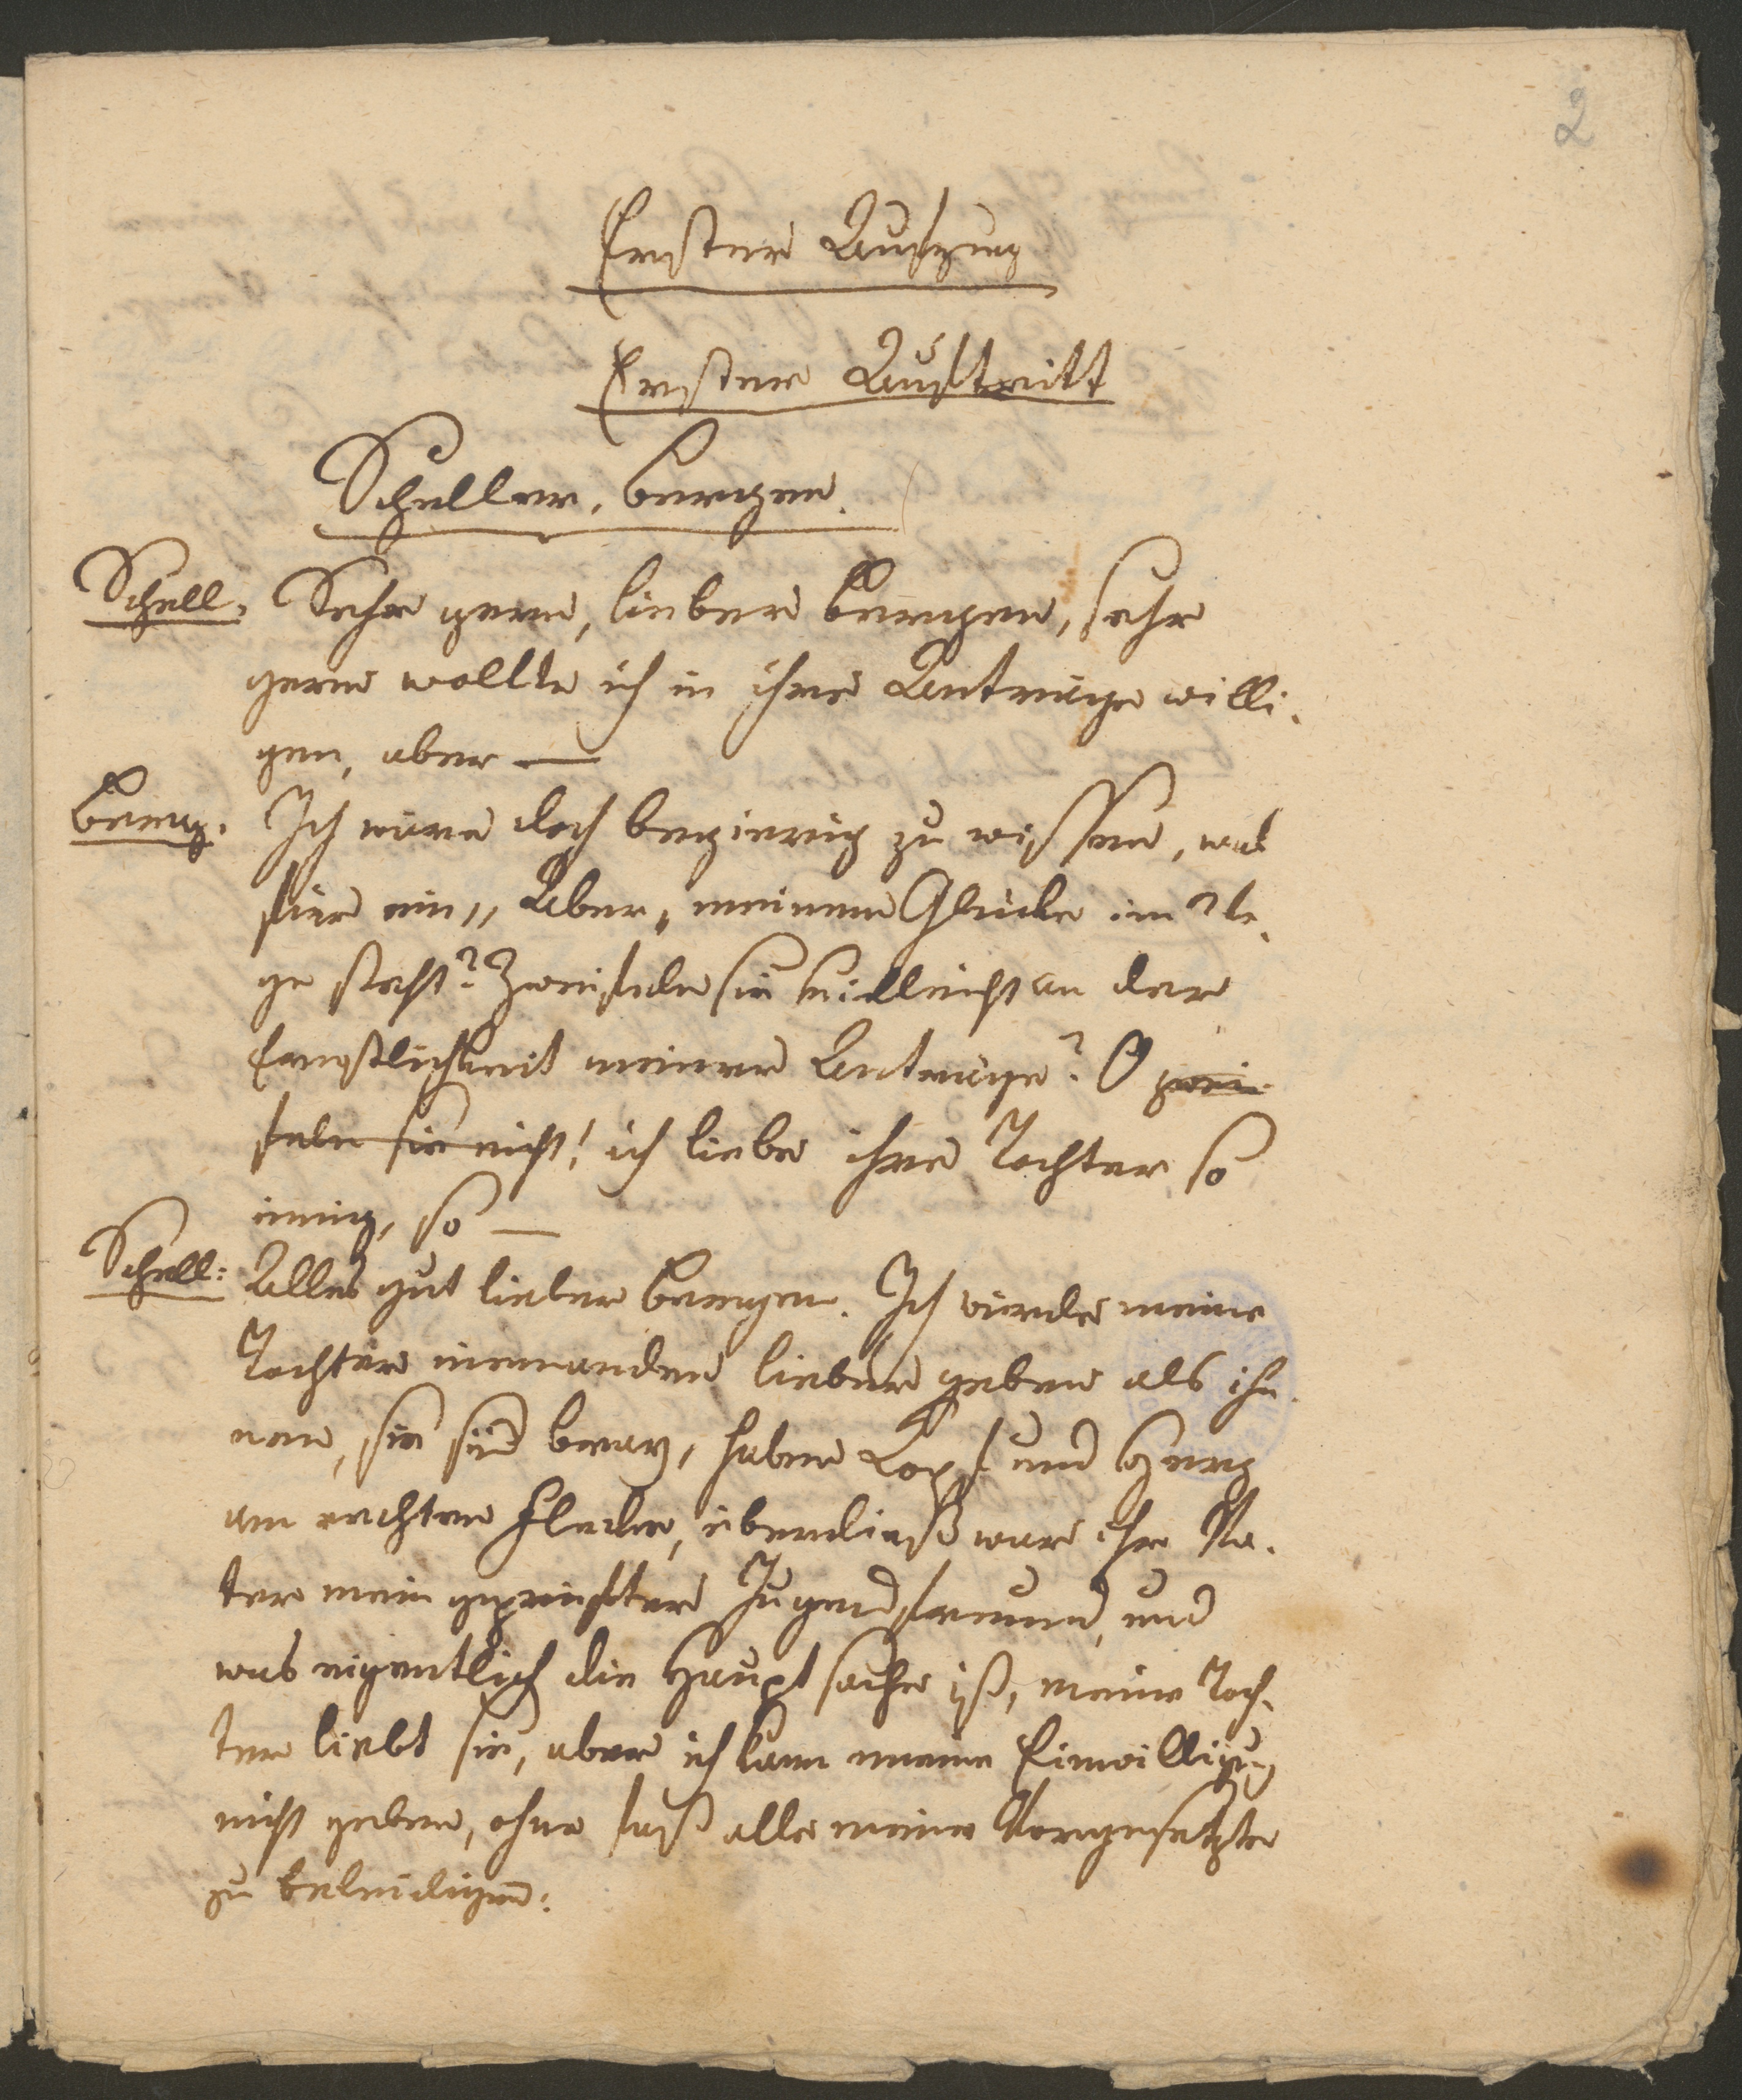 2
Erster Aufzug
Erster Auftritt
Scheller. Bergen.
Schell. Sehr gern, lieber Bergen, sehr
gerne wollte ich in ihre Anträge willi-
gen, aber —
Berg. Ich wäre doch begierig zu wissen, was
für ein „Aber„ meinem Glücke im We-
ge steht? Zweifeln sie vielleicht an der
Ernstlichkeit meiner Anträge? O zwei-
feln sie nicht! ich liebe ihre Tochter so
innig, so —
Schell: Alles gut lieber Bergen. Ich würde meine
Tochter niemanden lieber geben als ih-
nen, sie sind brav, haben Kopf und Herz
am rechten Flecke, überdieß war ihr Va-
ter mein geprüfter Jugendfreund, und
was eigentlich die Hauptsache ist, meine Toch-
ter liebt sie, aber ich kann meine Einwilligung
nicht geben, ohne fast alle meine Vorgesetzte
zu beleidigen.